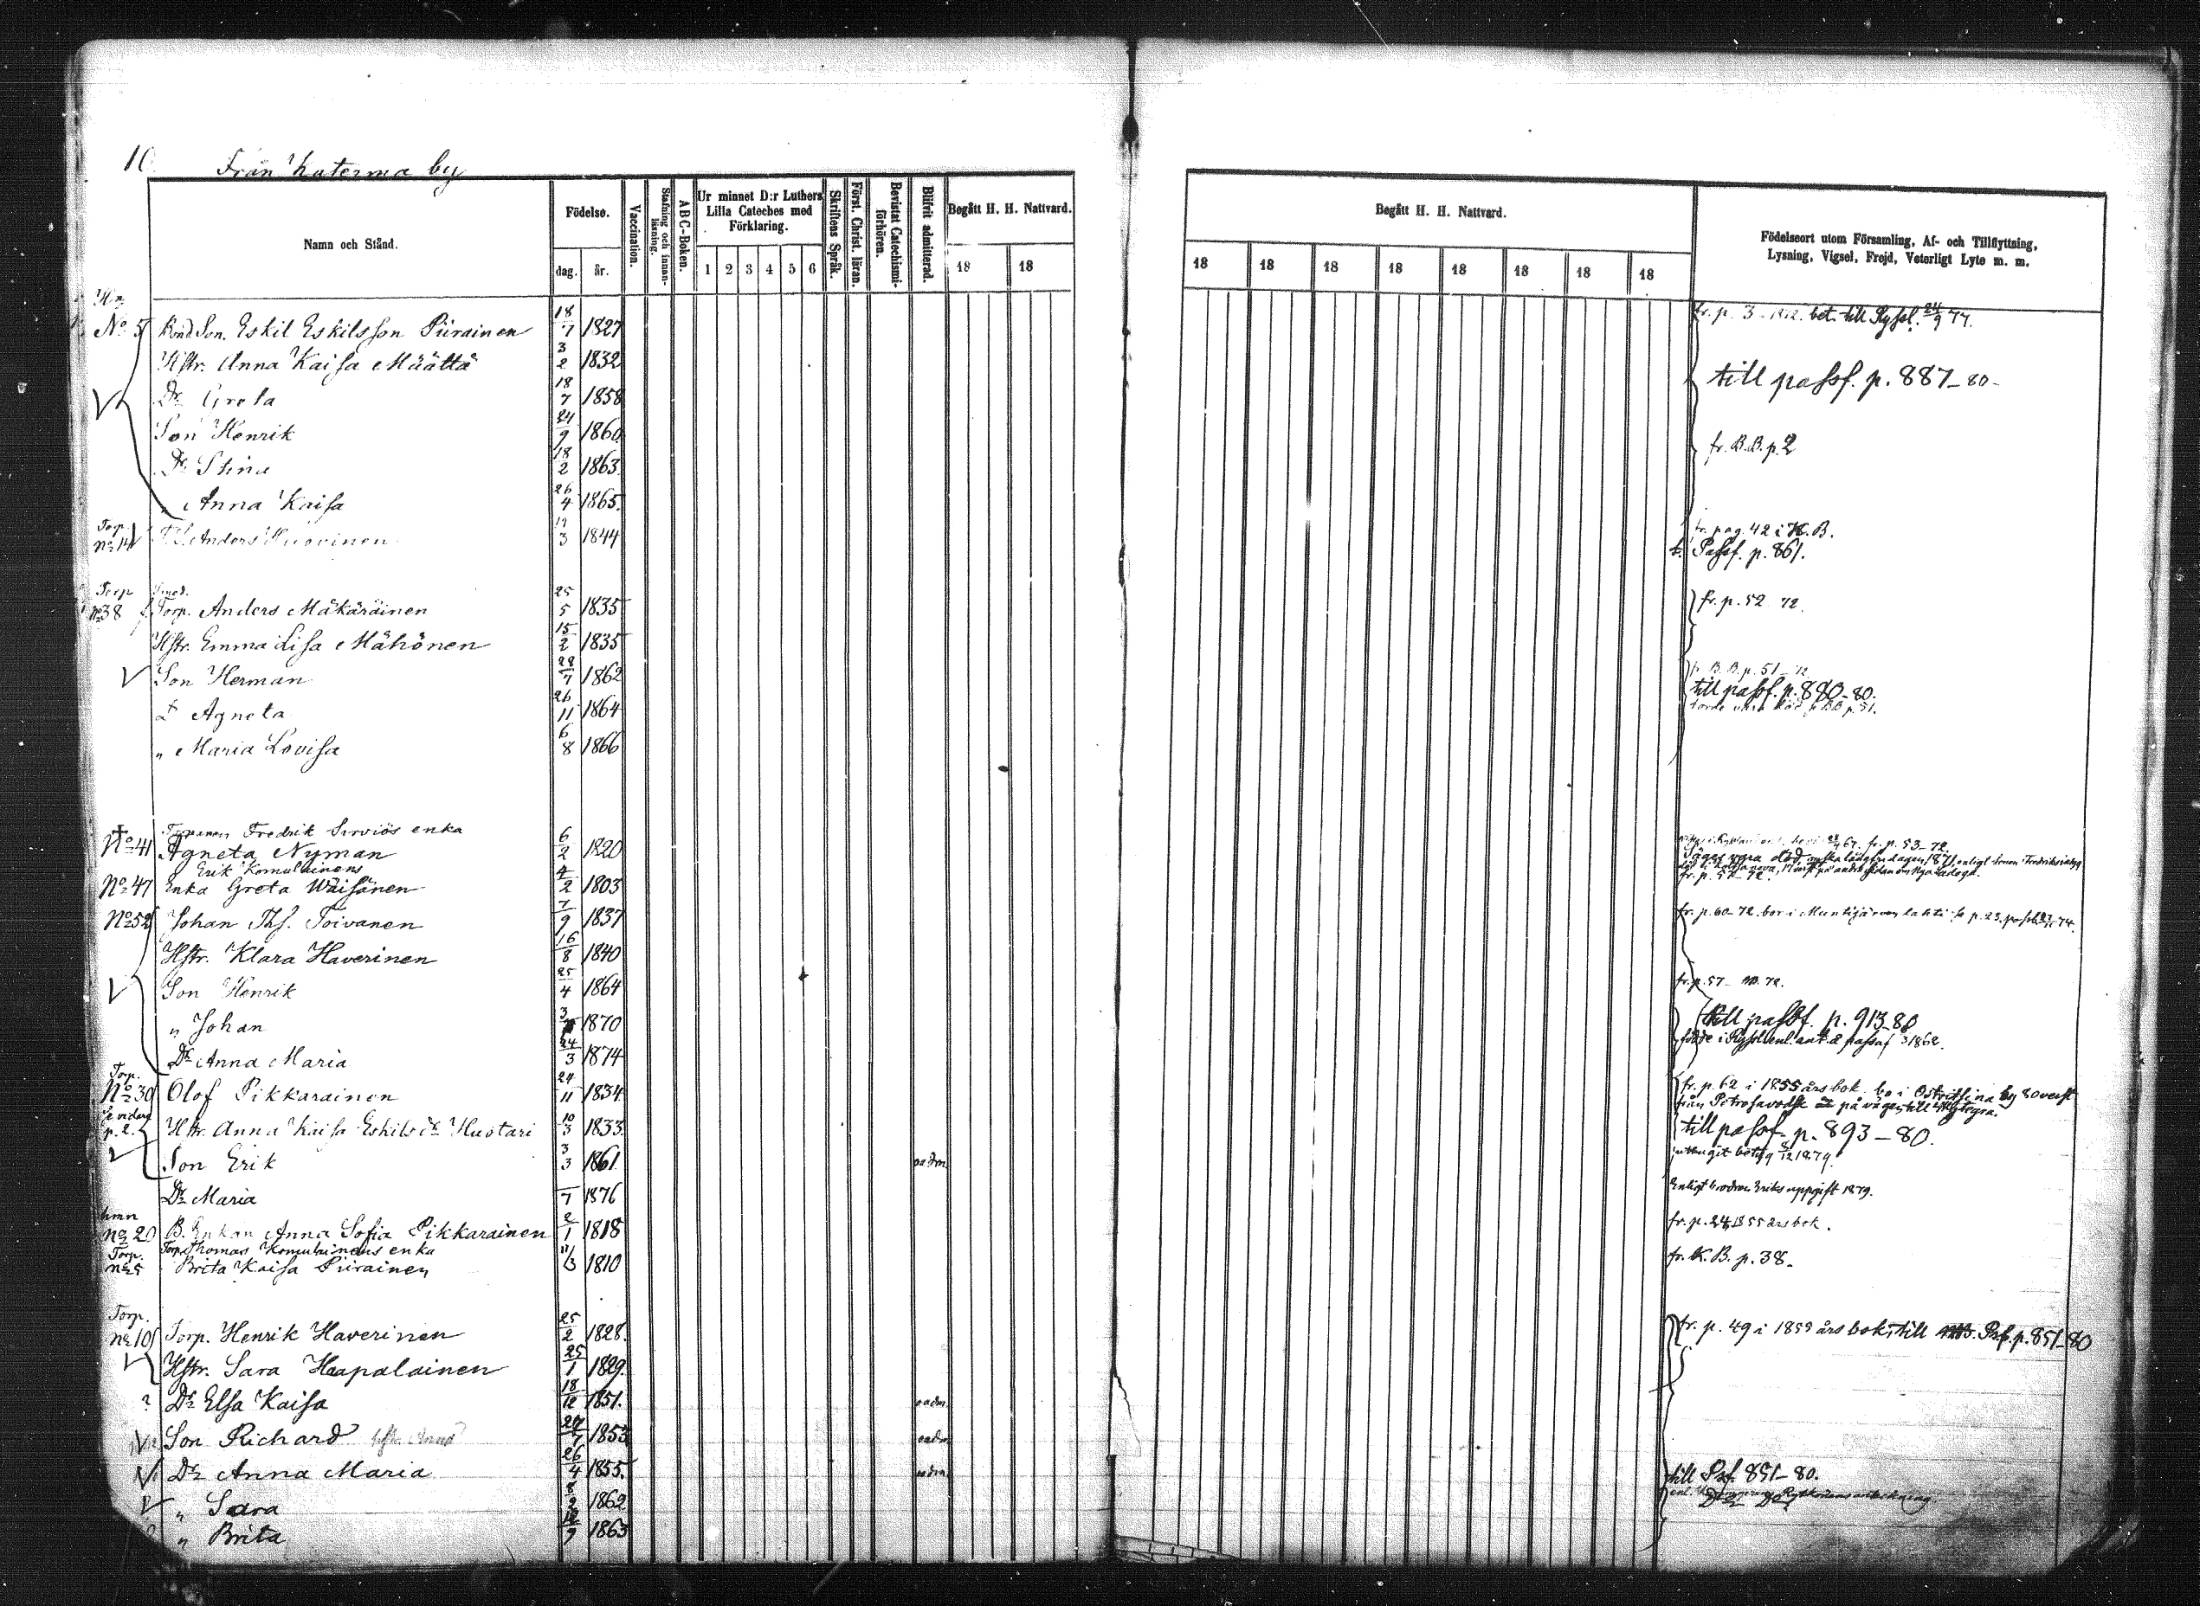 10
Från Katerma by
Namn och Stånd.
Födelse.
dag. år.
Vaccination.
Stafning och innanläsning.
ABC-Boken.
Ur minnet D:r Luthers Lilla Cateches med Förklaring.
1 2 3 4 5 6
Skriftens Språk.
Först. Christ. läran.
Bevistat Catechismi-förhören.
Blifvit admitterad.
Begått H. H. Nattvard.
18 18
Begått H. H. Nattvard.
18 18 18 18 18 18 18 18
Födelseort utom Församling, Af- och Tillflyttning,
Lysning, Vigsel, Frejd, Veterligt Lyte m. m.
No 5 Bond Son. Eskil Eskilsson Piirainen 18/7 1827 fr. p. 3 bet. till Ryssl. 24/9 77.
Hstr. Anna Kaisa Määttä 3/2 1832
till passf. p. 887-80-
Dr Greta 18/7 1858
Son Henrik 24/9 1860 fr. B.B. p. 2
Dr Stina 18/2 1863
Anna Kaisa 26/4 1865.
Torp. No 14 Anders 3 1844 fr. pag. 42 i K.B.
t. Passf. p. 861.
Torp No 38 Torp. Anders Mäkäräinen 25/5 1835 fr. p. 52 72.
Hstr. Emma Lisa Mähönen 15/2 1835
Son Herman 28/7 1862 B.B. p. 51-72
till passf. p. 880-80.
D. Agneta 26/11 1864
" Maria Lovisa 6/8 1866
Fredrik Serviös enka
No 41 Agneta Nyman 6/2 1820 fr. p. 53-72.
Erik Komulainens
No 47 Enka Greta Wäisänen 4/2 1803
No 52 Johan Ths. Toivanen 7/9 1837 fr. p. 60-72. bor i
Hstr. Klara Haverinen 16/8 1840
Son Henrik 25/4 1864 fr. p. 57- 72.
" Johan 3 1870 till passf. p. 913-80
Dr Anna Maria 24/3 1874
Torp. No 30 Olof Pikkarainen 24/11 1834 fr. p. 62 i 1855 års bok. bo i Ostritsina by 80 verst
från Petrosavodsk på vägen till Wytegra.
Se vidare p. 2. Hstr. Anna Kaisa Eskilsdr Huotari 10/3 1833. till passf. p. 893-80.
Son Erik 3/3 1861. oadm.
Dr Maria /7 1876 Enligt brodren Eriks uppgift 1879.
hmn No 20 B. Enkan Anna Sofia Pikkarainen 2/1 1818 fr. p. 24, 1855 års bok.
Torp. Thomas Komulainens enka
Torp. No 5 Brita Kaisa Piirainen 11/3 1810 fr. K.B. p. 38.
Torp. No 10 Torp. Henrik Haverinen 25/2 1828. fr. p. 49 i 1855 års bok, till Psf. p. 851-80
Hstr. Sara Haapalainen 25/1 1829.
? Dr Elsa Kaisa 18/12 1851. oadm.
Son Richard 7 1853 oadm.
Dr Anna Maria 26/4 1855. oadm. till Psf. 851-80.
" Sara 2 1862
" Brita 12/9 1863